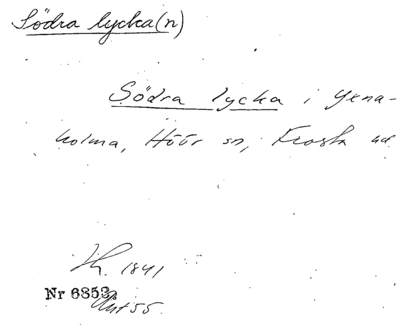 Södra lycka(n)
Södra lycka i Yxna-
holma, Höör sn, Frosta hd
1841
Nr 6353